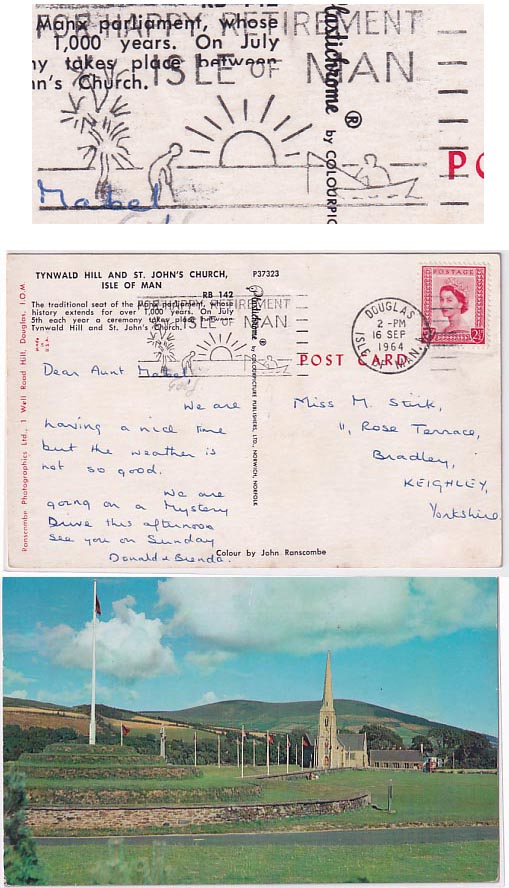 FOR HAPPY RETIREMENT
RB 142
Manx parliament, whose
1,000 years. On July
ny takes place between
nn's Church.
ISLE OF MAN
lastichrome ®
by COLOURPIC
PO
Mabel
TYNWALD HILL AND ST. JOHN'S CHURCH,
ISLE OF MAN
P37323
RB 142
The traditional seat of the Manx parliament, whose
history extends for over 1,000 years. On July
5th each year a ceremony takes place between
Tynwald Hill and St. John's Church.
FOR HAPPY RETIREMENT
ISLE OF MAN
Made in U.S.A.
Ranscombe Photographics Ltd., 1 Well Road Hill, Douglas, I.O.M.
Plastichrome ®
by COLOURPICTURE PUBLISHERS, LTD., NORWICH, NORFOLK
POST CARD
POSTAGE
2½
DOUGLAS
2 - PM
16 SEP
1964
ISLE OF MAN
Dear Aunt Mabel,
We are
having a nice time
but the weather is
not so good.
We are
going on a Mystery
Drive this afternoon
See you on Sunday
Donald & Brenda.
Miss M. Stirk,
11, Rose Terrace,
Bradley,
KEIGHLEY,
Yorkshire.
Colour by John Ranscombe